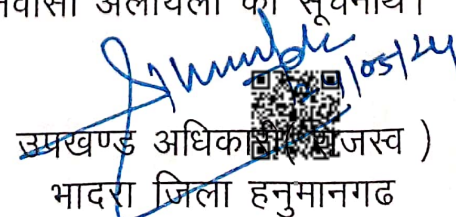 निवासी अलायला को सूचनार्थ।
/05/24
उपखण्ड अधिकारी( राजस्व )
भादरा जिला हनुमानगढ